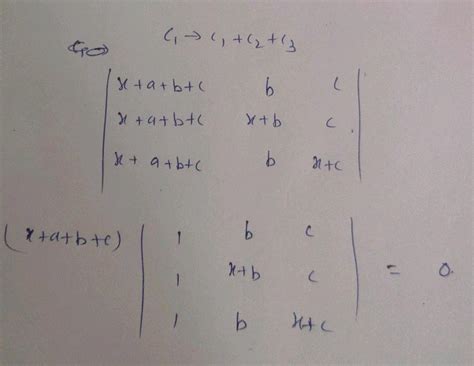 C₁ → C₁ + C₂ + C₃
x+a+b+c b c
x+a+b+c x+b c
x+a+b+c b x+c
(x+a+b+c) | 1 b c |
1 x+b c = 0.
1 b x+c